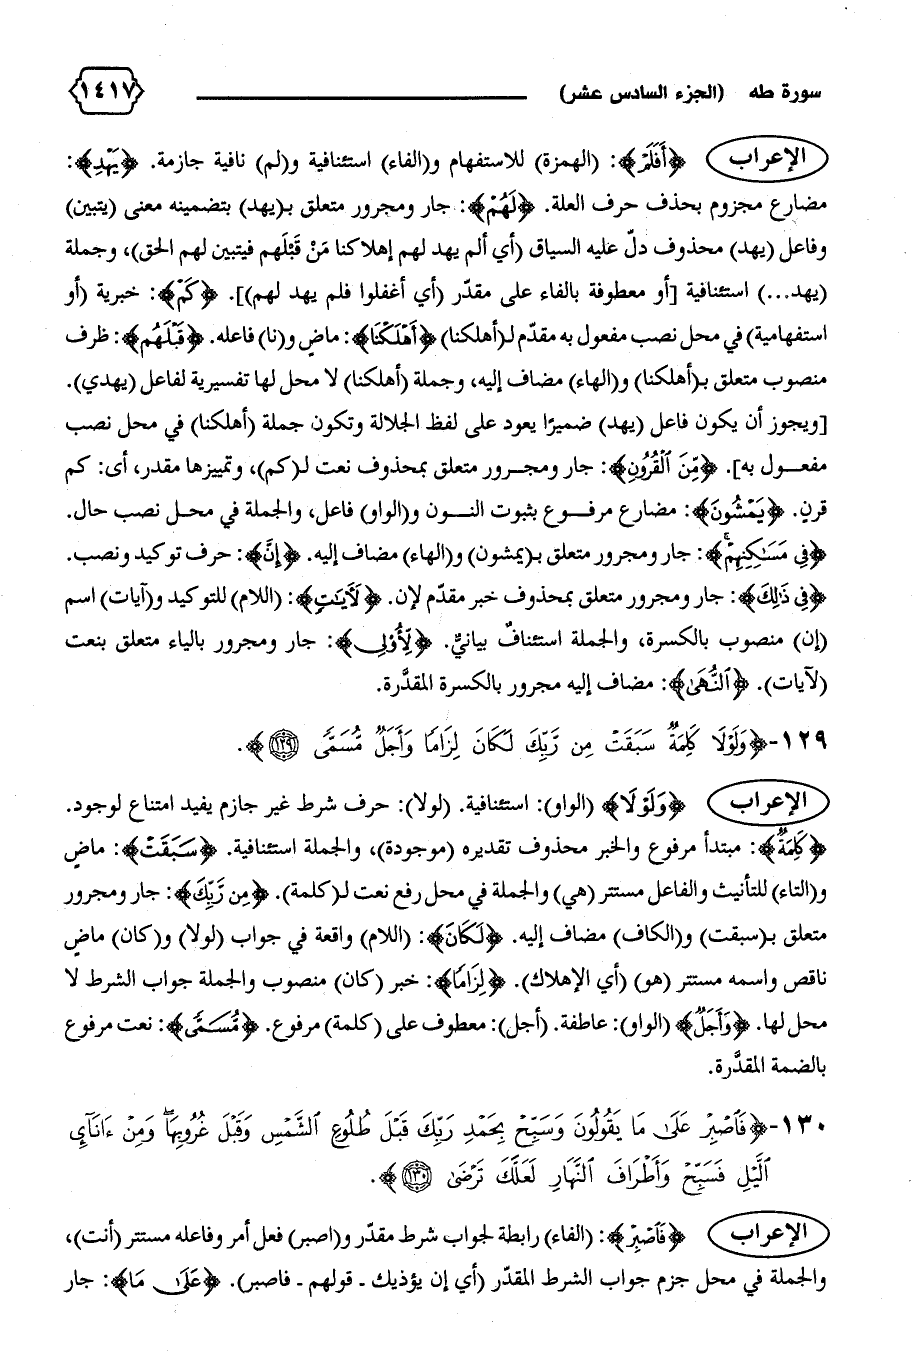 سورة طه (الجزء السادس عشر) ١٤١٧
الإعراب ﴿أَفَلَمْ﴾: (الهمزة) للاستفهام و(الفاء) استئنافية و(لم) نافية جازمة. ﴿يَهْدِ﴾:
مضارع مجزوم بحذف حرف العلة. ﴿لَهُمْ﴾: جار ومجرور متعلق بـ(يهد) بتضمينه معنى (يتبين)
وفاعل (يهد) محذوف دلّ عليه السياق (أي ألم يهد لهم إهلاكنا مَنْ قَبْلَهم فيتبين لهم الحق)، وجملة
(يهد...) استئنافية [أو معطوفة بالفاء على مقدّر (أي أغفلوا فلم يهد لهم)]. ﴿كَمْ﴾: خبرية (أو
استفهامية) في محل نصب مفعول به مقدّم لـ(أهلكنا) ﴿أَهْلَكْنَا﴾: ماضٍ و(نا) فاعله. ﴿قَبْلَهُم﴾: ظرف
منصوب متعلق بـ(أهلكنا) و(الهاء) مضاف إليه، وجملة (أهلكنا) لا محل لها تفسيرية لفاعل (يهدي).
[ويجوز أن يكون فاعل (يهد) ضميرًا يعود على لفظ الجلالة وتكون جملة (أهلكنا) في محل نصب
مفعـول به]. ﴿مِّنَ ٱلْقُرُونِ﴾: جار ومجـرور متعلق بمحذوف نعت لـ(كم)، وتمييزها مقدر، أى: كم
قرنٍ. ﴿يَمْشُونَ﴾: مضارع مرفـوع بثبوت النـون و(الواو) فاعل، والجملة في محـل نصب حال.
﴿فِى مَسَـٰكِنِهِمْ ۚ﴾: جار ومجرور متعلق بـ(يمشون) و(الهاء) مضاف إليه. ﴿إِنَّ﴾: حرف توكيد ونصب.
﴿فِى ذَٰلِكَ﴾: جار ومجرور متعلق بمحذوف خبر مقدّم لإن. ﴿لَـَٔايَـٰتٍ﴾: (اللام) للتوكيد و(آيات) اسم
(إن) منصوب بالكسرة، والجملة استئنافٌ بيانيٌّ. ﴿لِّأُو۟لِى﴾: جار ومجرور بالياء متعلق بنعت
(لآيات). ﴿ٱلنُّهَىٰ﴾: مضاف إليه مجرور بالكسرة المقدَّرة.
١٢٩-﴿وَلَوْلَا كَلِمَةٌ سَبَقَتْ مِن رَّبِّكَ لَكَانَ لِزَامًا وَأَجَلٌ مُّسَمًّى ١٢٩﴾.
الإعراب ﴿وَلَوْلَا﴾ (الواو): استئنافية. (لولا): حرف شرط غير جازم يفيد امتناع لوجود.
﴿كَلِمَةٌ﴾: مبتدأ مرفوع والخبر محذوف تقديره (موجودة)، والجملة استئنافية. ﴿سَبَقَتْ﴾: ماضٍ
و(التاء) للتأنيث والفاعل مستتر (هي) والجملة في محل رفع نعت لـ(كلمة). ﴿مِن رَّبِّكَ﴾: جار ومجرور
متعلق بـ(سبقت) و(الكاف) مضاف إليه. ﴿لَكَانَ﴾: (اللام) واقعة في جواب (لولا) و(كان) ماضٍ
ناقص واسمه مستتر (هو) (أي الإهلاك). ﴿لِزَامًا﴾: خبر (كان) منصوب والجملة جواب الشرط لا
محل لها. ﴿وَأَجَلٌ﴾ (الواو): عاطفة. (أجل): معطوف على (كلمة) مرفوع. ﴿مُّسَمًّى﴾: نعت مرفوع
بالضمة المقدَّرة.
١٣٠-﴿فَٱصْبِرْ عَلَىٰ مَا يَقُولُونَ وَسَبِّحْ بِحَمْدِ رَبِّكَ قَبْلَ طُلُوعِ ٱلشَّمْسِ وَقَبْلَ غُرُوبِهَا ۖ وَمِنْ ءَانَآئِ
ٱلَّيْلِ فَسَبِّحْ وَأَطْرَافَ ٱلنَّهَارِ لَعَلَّكَ تَرْضَىٰ ١٣٠﴾.
الإعراب ﴿فَٱصْبِرْ﴾: (الفاء) رابطة لجواب شرط مقدّر و(اصبر) فعل أمر وفاعله مستتر (أنت)،
والجملة في محل جزم جواب الشرط المقدّر (أي إن يؤذيك ـ قولهم ـ فاصبر). ﴿عَلَىٰ مَا﴾: جار